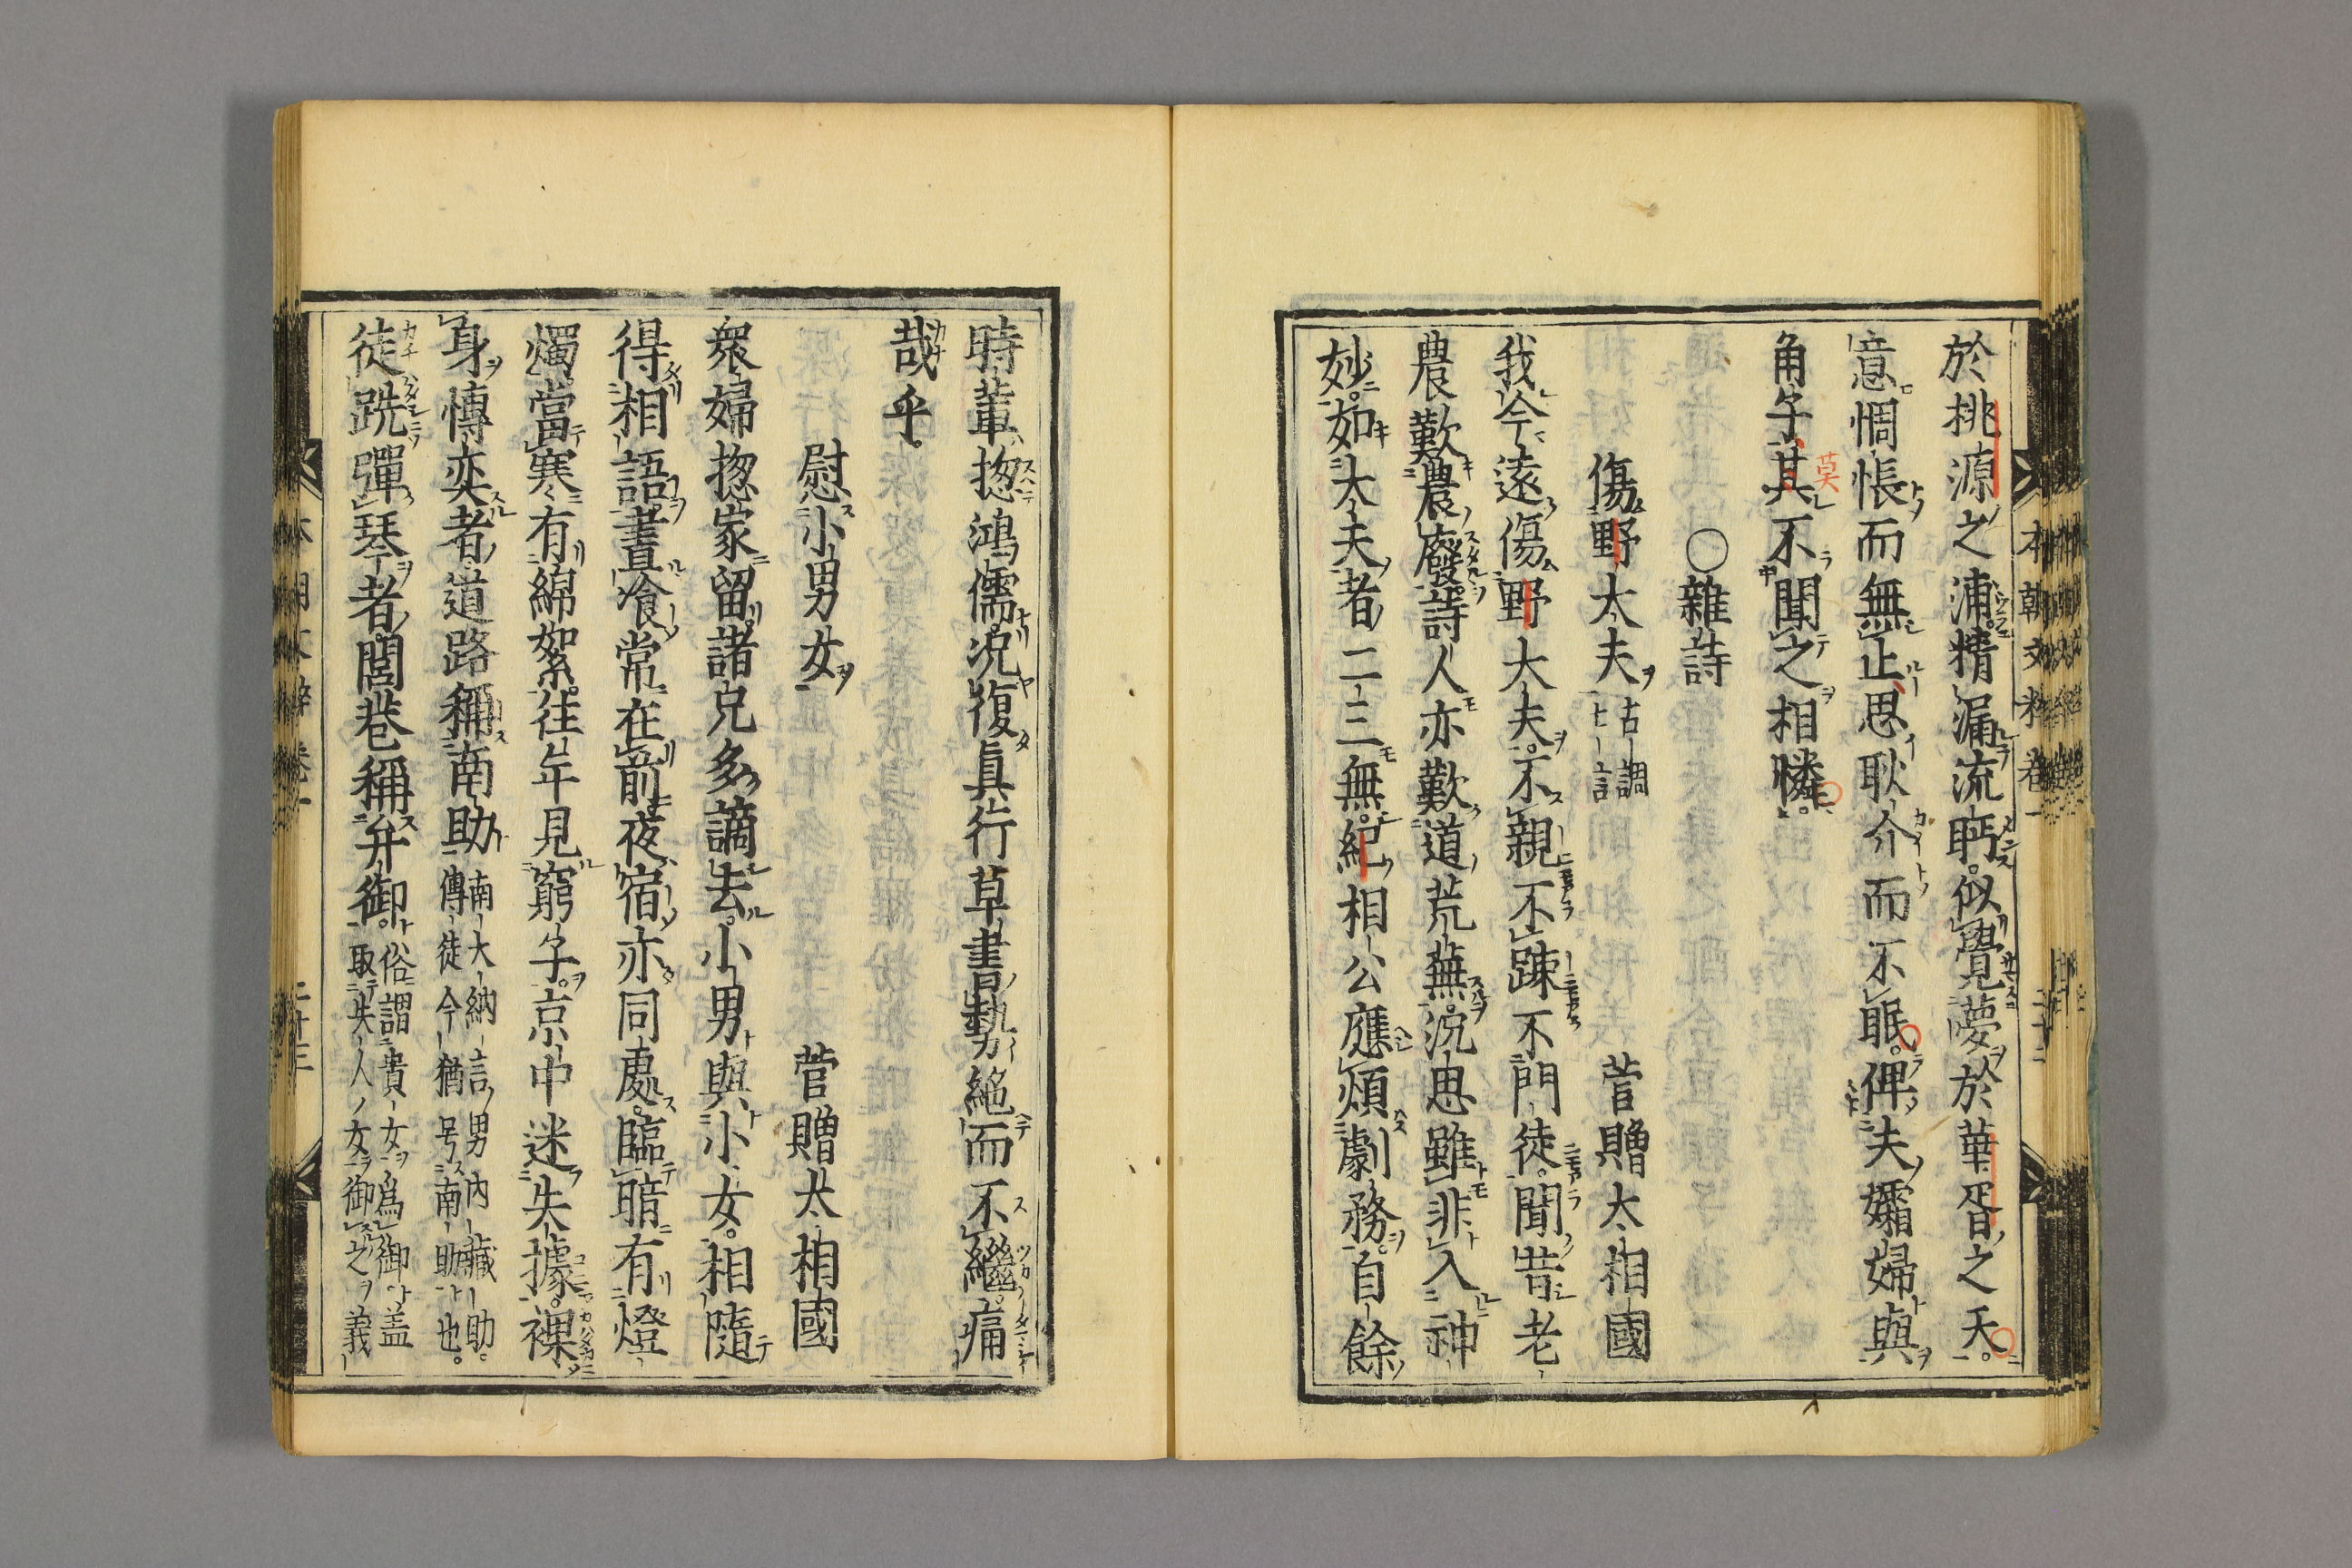 於桃源之浦精漏流眄。似覺夢於華胥之天。
意惆悵而無止思耿介而不眠。俾夫孀婦與
角子其不聞之相憐。
莫
〇雜詩
傷野大夫 古調七言 菅贈太相國
我今遠傷野大夫。不親不踈不門徒。聞昔老
農歎農廢。詩人亦歎道荒蕪。況思雖非入神
妙。如大夫者二三無。紀相公應煩劇務。自餘
時輩惣鴻儒。況復眞行草書勢絶而不繼。痛
哉乎。
慰小男女 菅贈太相國
衆婦惣家留。諸兄多謫去。小男與小女。相隨
得相語。晝飡常在前。夜宿亦同處。臨暗有燈
燭。當寒有綿絮。往年見窮子。京中迷失據。裸
身博奕者。道路稱南助 南大納言男内藏助。
傳徒今猶号南助也。
徒跣彈琴者。閭巷稱弁御。俗謂貴女爲御盖
取夫人女御之義
本朝文粹卷一
二十三